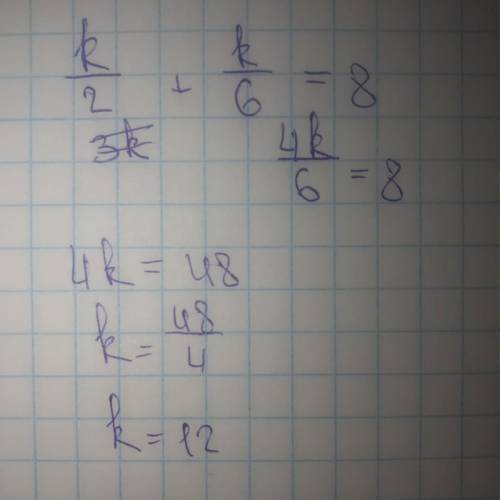 k/2 + k/6 = 8
3k 4k/6 = 8
4k = 48
k = 48/4
k = 12